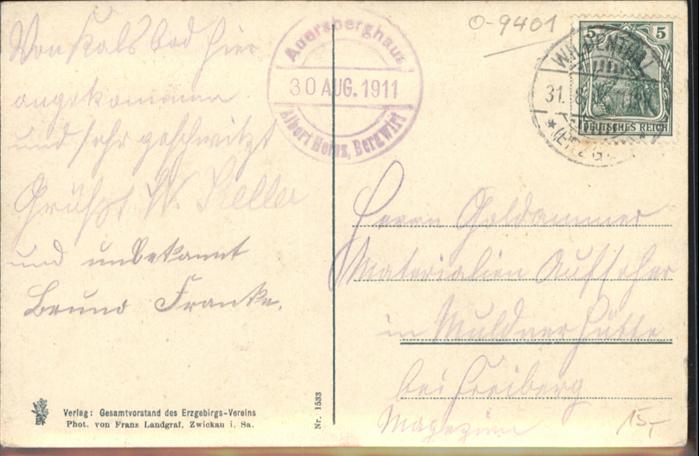 Von Karlsbad hier
angekommen
und sehr geschwitzt
Grüßt W. Keller
und unbekannt
Bruno Franke.
Auersberghaus
30 AUG. 1911
Bergwirt
O-9401
5 5
DEUTSCHES REICH
WILDENTHAL
31. 8.
* (ERZGEB.) *
Herrn Goldammer
Materialien Aufseher
in Muldner Hütte
bei Freiberg
Magazin
15,-
Nr. 1533
Verlag: Gesamtvorstand des Erzgebirgs-Vereins
Phot. von Franz Landgraf, Zwickau i. Sa.